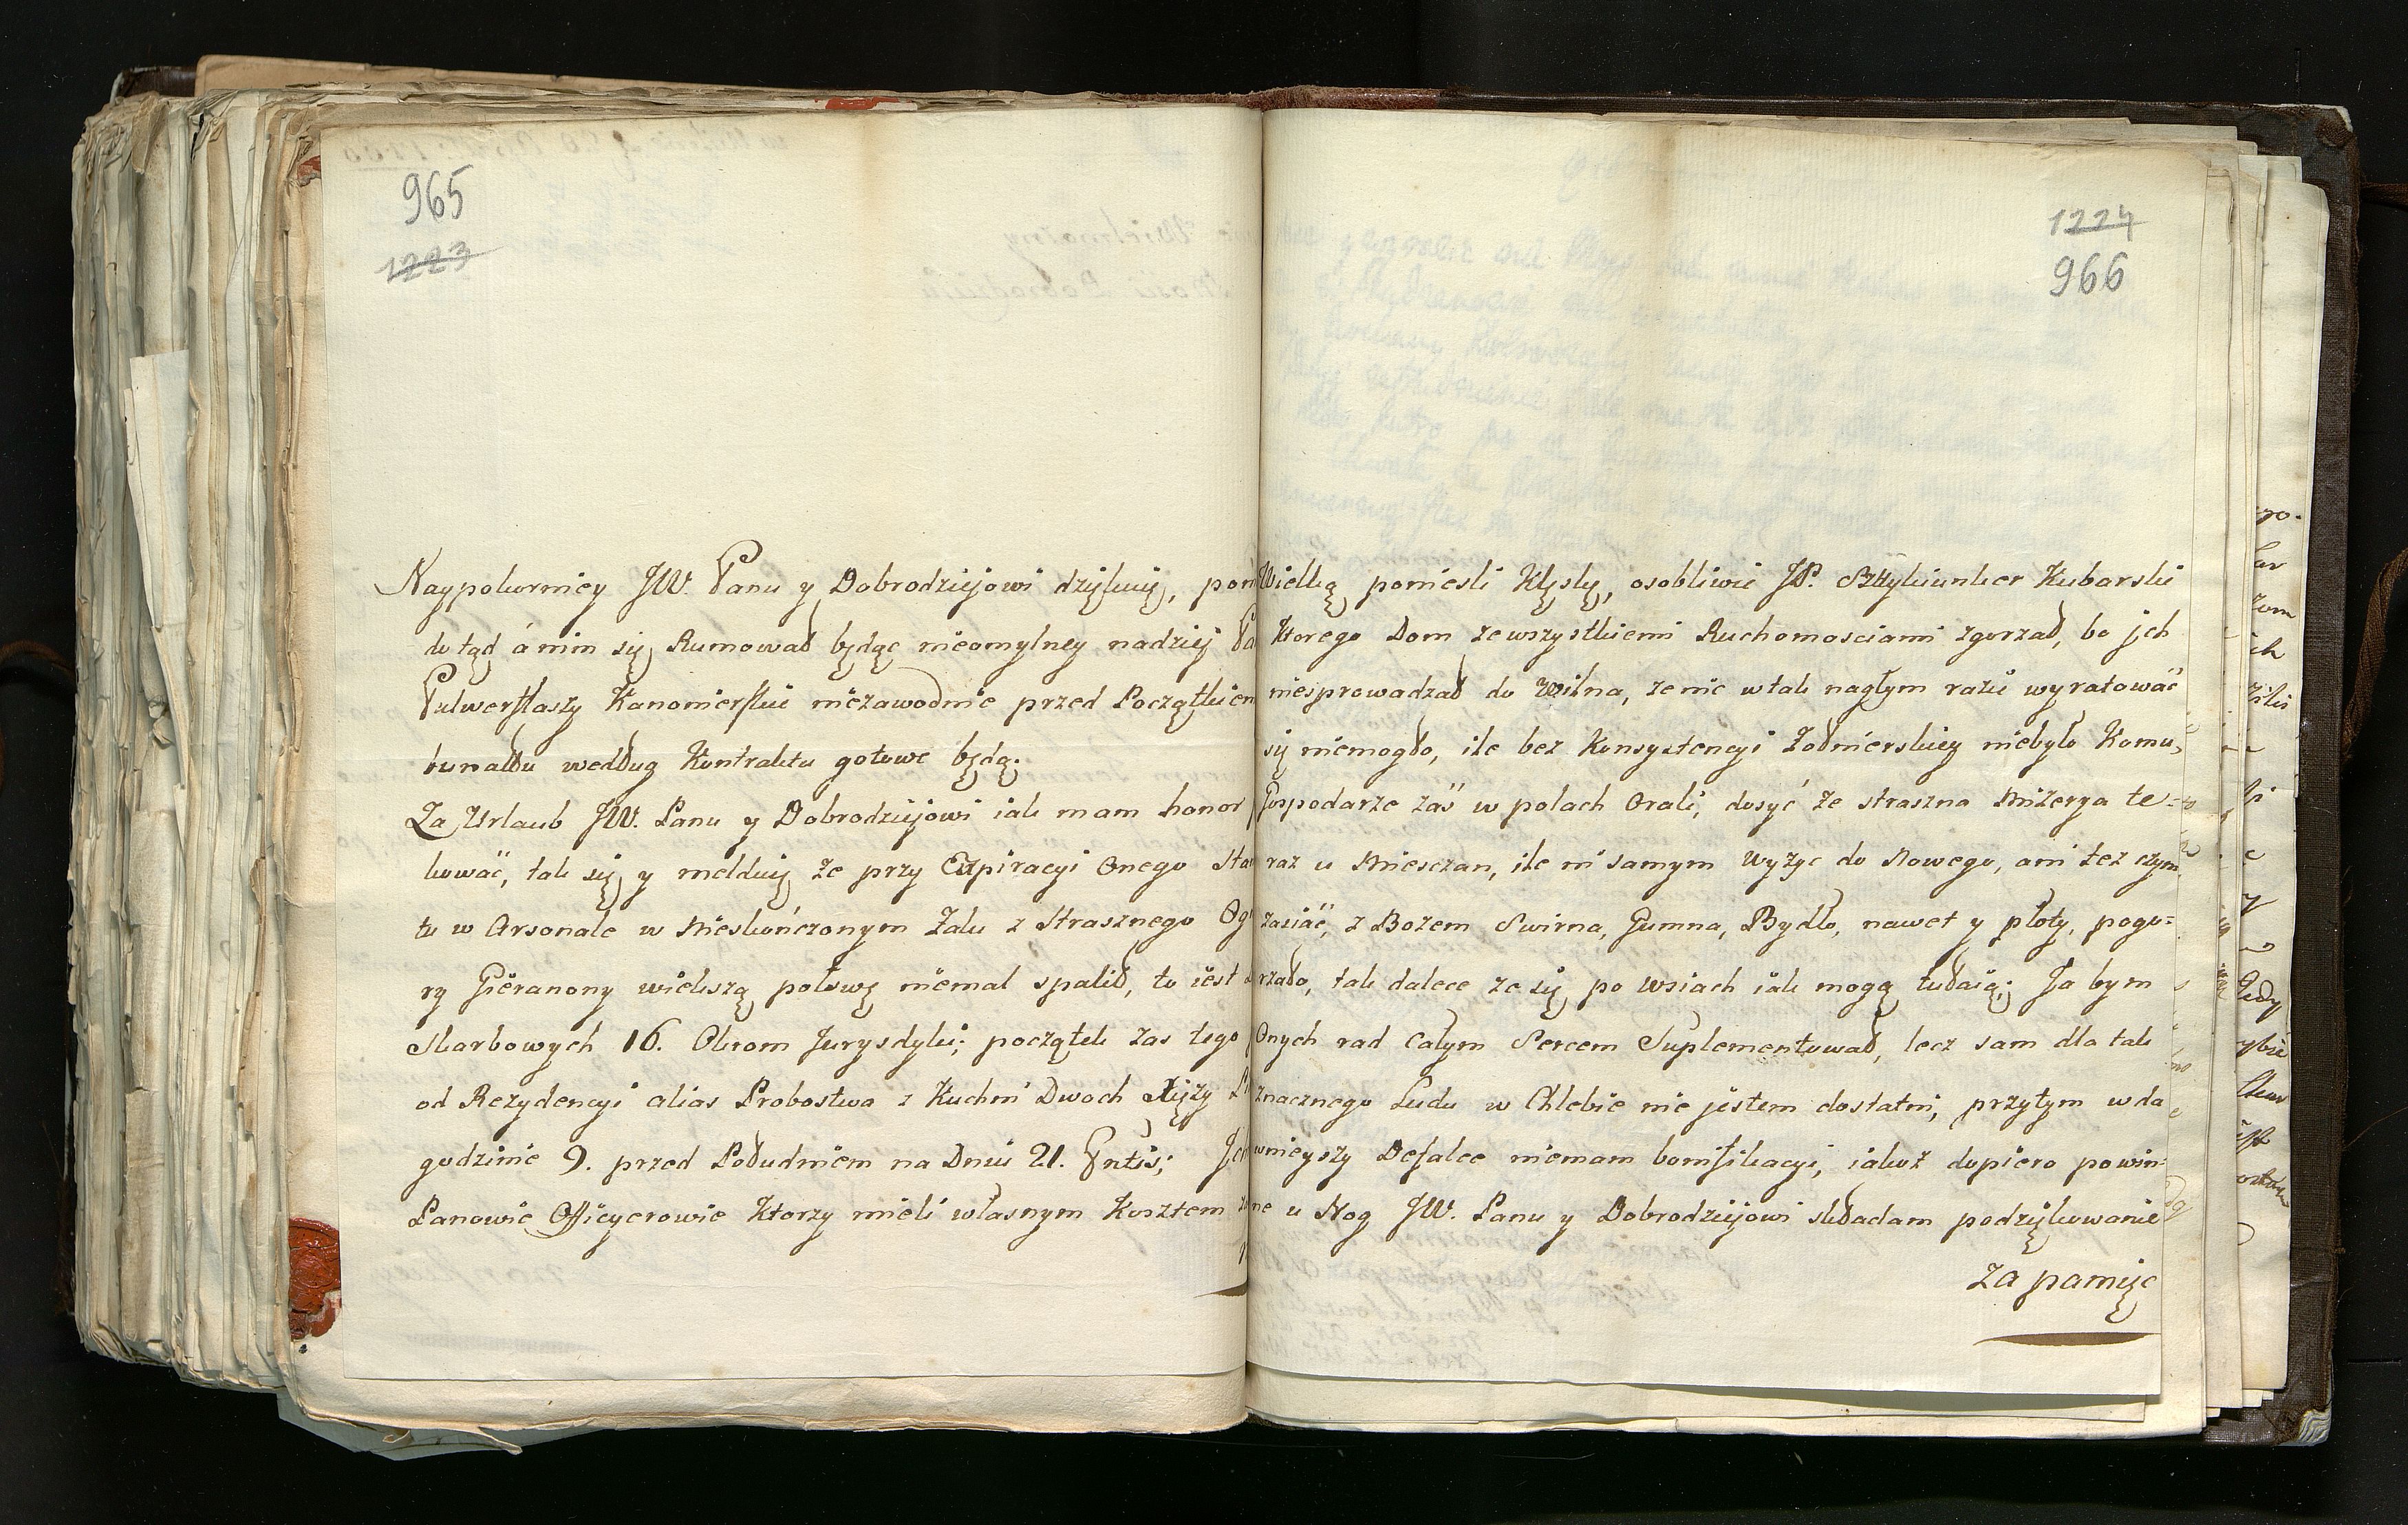 965
1223
Naypokorniey JW. Panu y Dobrodziejowi dziękuię,
do tąd á nim się Rumował będąc nieomylney nadziej
Pulwerflaszy Kanonierskie niezawodnie przed
bunałłu według Kontraktu gotowe będą.
Za Urlaub JW. Panu y Dobrodziejowi iak mam honor
kować, tak się y melduię że przy Expiracyi Onego
tu w Arsonale w Nieskończonym Żalu z Strasznego
ry Gieranony większą połowę niemal spalił, to iest
Skarbowych 16. Okrom Jurysdyki; początek zas tego
od Rezydencyi alias Probostwa z Kuchni Dwoch Xięży
godzinie 9. przed Południem na Dniu 21. Pntis;
Panowie Officyerowie Ktorzy mieli własnym Kosztem
1224
966
Wielką poniesli Klęskę, osobliwie JP. Sztykiunker Kubarski
Ktorego Dom zewszystkiemi Ruchomosciami zgorzał, bo jch
niesprowadzał do Wilna, ze nic w tak nagłym raziė wyratować
się niemogło, ile bez Konsystencyi Żołnierskiey niebyło Komu,
Gospodarze zaś w polach Orali, dosyć że straszna Mizerya te-
raz u Miesczan, ile ni samym wyżyc do Nowego, ani też czym
zasiać, z Bożem Swirna, Gumna, Bydło, nawet y płoty, pogo=
rzało, tak dalece ze się po Wsiach iak mogą tułaią; Ja bym
Onych rad Całym Sercem Suplementował, lecz sam dla tak
znacznego Ludu w Chlebie nie jestem dostatni, przytym w da
wnieyszy Defalce niemam bonifikacyi, iakoż dopiero powin=
ne u Nog JW. Panu y Dobrodziejowi składam podziękowanie
za pamięc